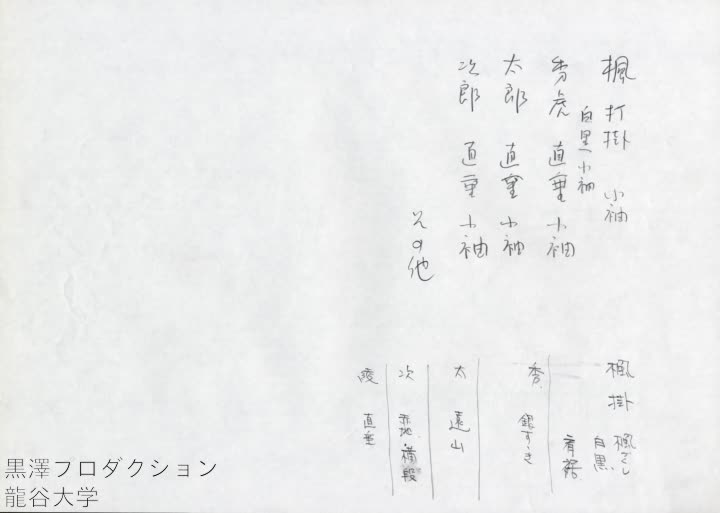 楓 打掛 小袖
白黒小袖
秀虎 直垂 小袖
太郎 直垂 小袖
次郎 直垂 小袖
その他
楓 掛 楓ずくし
白黒
秀 銀すゝき
太 遠山
次 赤地 横段
直垂
黒澤フロダクション
龍谷大学